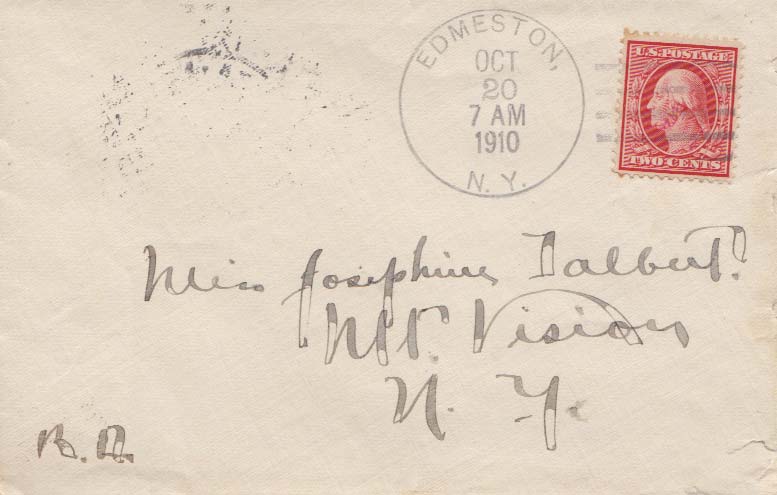 EDMESTON,
OCT
20
7 AM
1910
N. Y.
U.S. POSTAGE
TWO CENTS
Miss Josephine Talbert.
Mt Vision
N. Y.